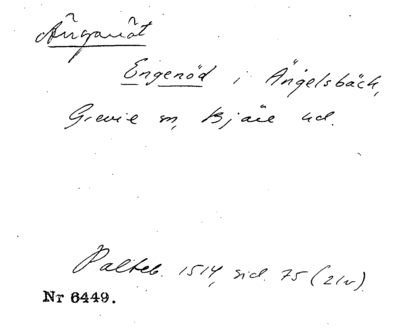 Änganöt
Engenöd i Ängelsbäck,
Grevie sn, Bjäre hd.
Palteb. 1514, sid. 75 (21v).
Nr 6449.